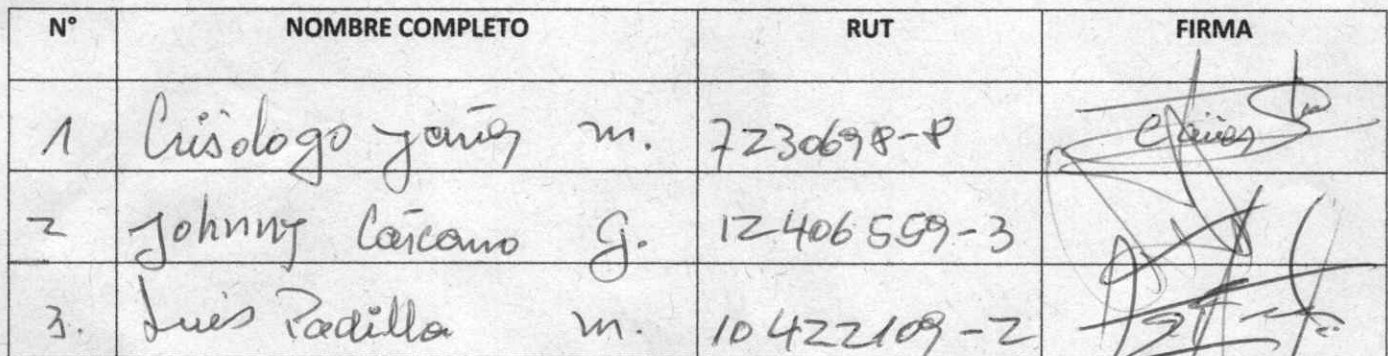 N° NOMBRE COMPLETO RUT FIRMA
1 Crisologo Yañez m. 7230698-8
2 Johnny Cárcamo G. 12406559-3
3. Luis Padilla m. 10422109-2